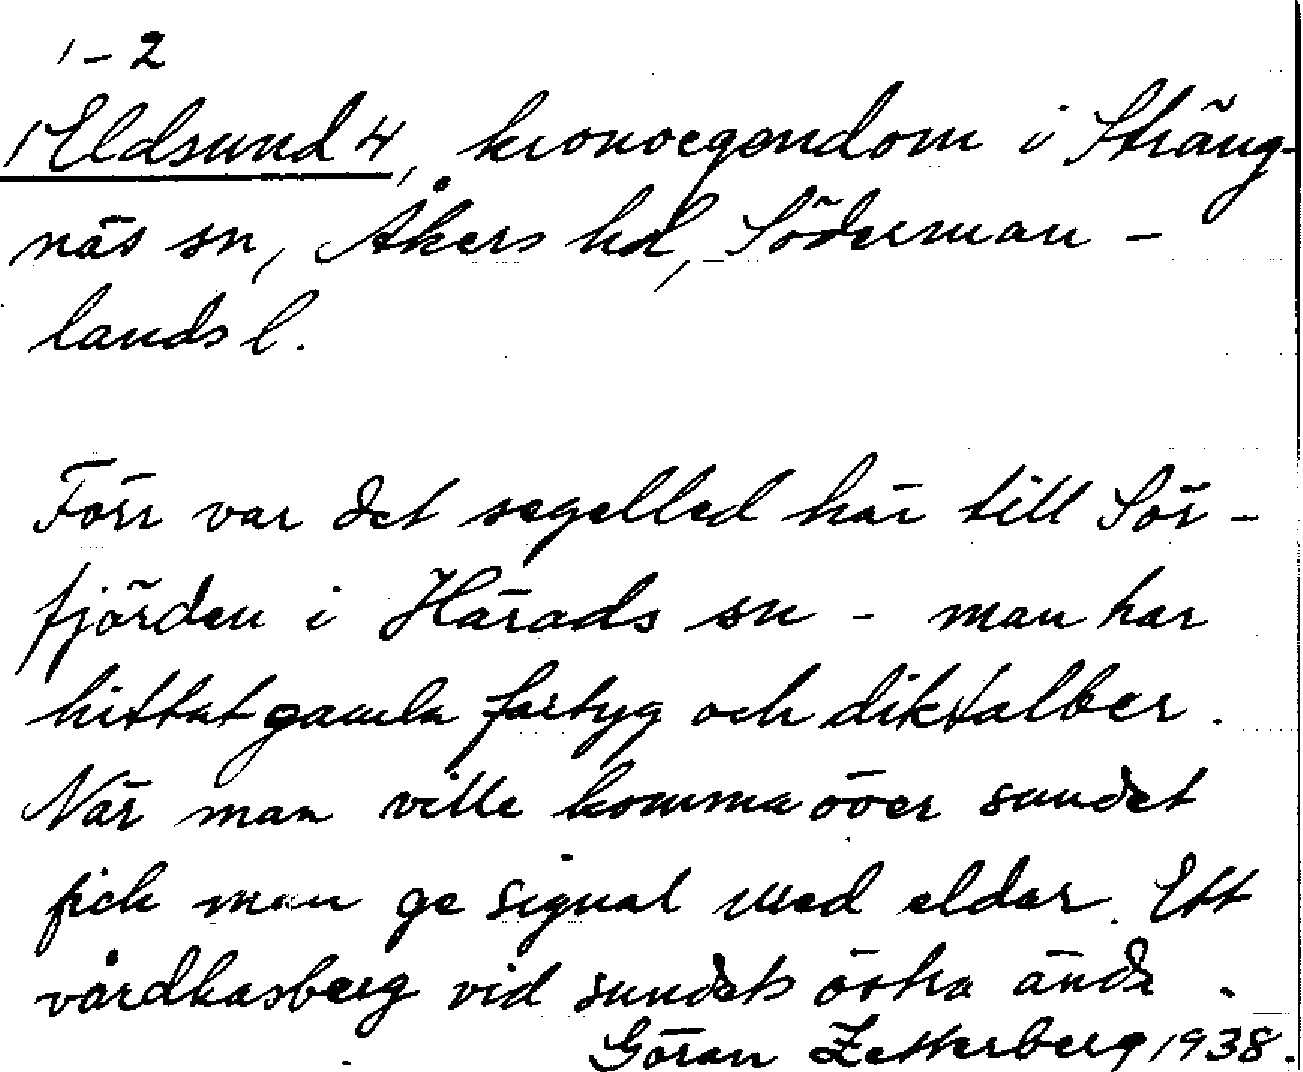 1-2
1 Eldsund 4, kronoegendom i Sträng-
näs sn, Åkers hd, Söderman-
lands l.
Förr var det segelled här till Sör-
fjärden i Härads sn - man har
hittat gamla fartyg och dikstalber.
När man ville komma över sundet
fick man ge signal med eldar. Ett
vårdkasberg vid sundets östra ände.
Göran Zetterberg 1938.